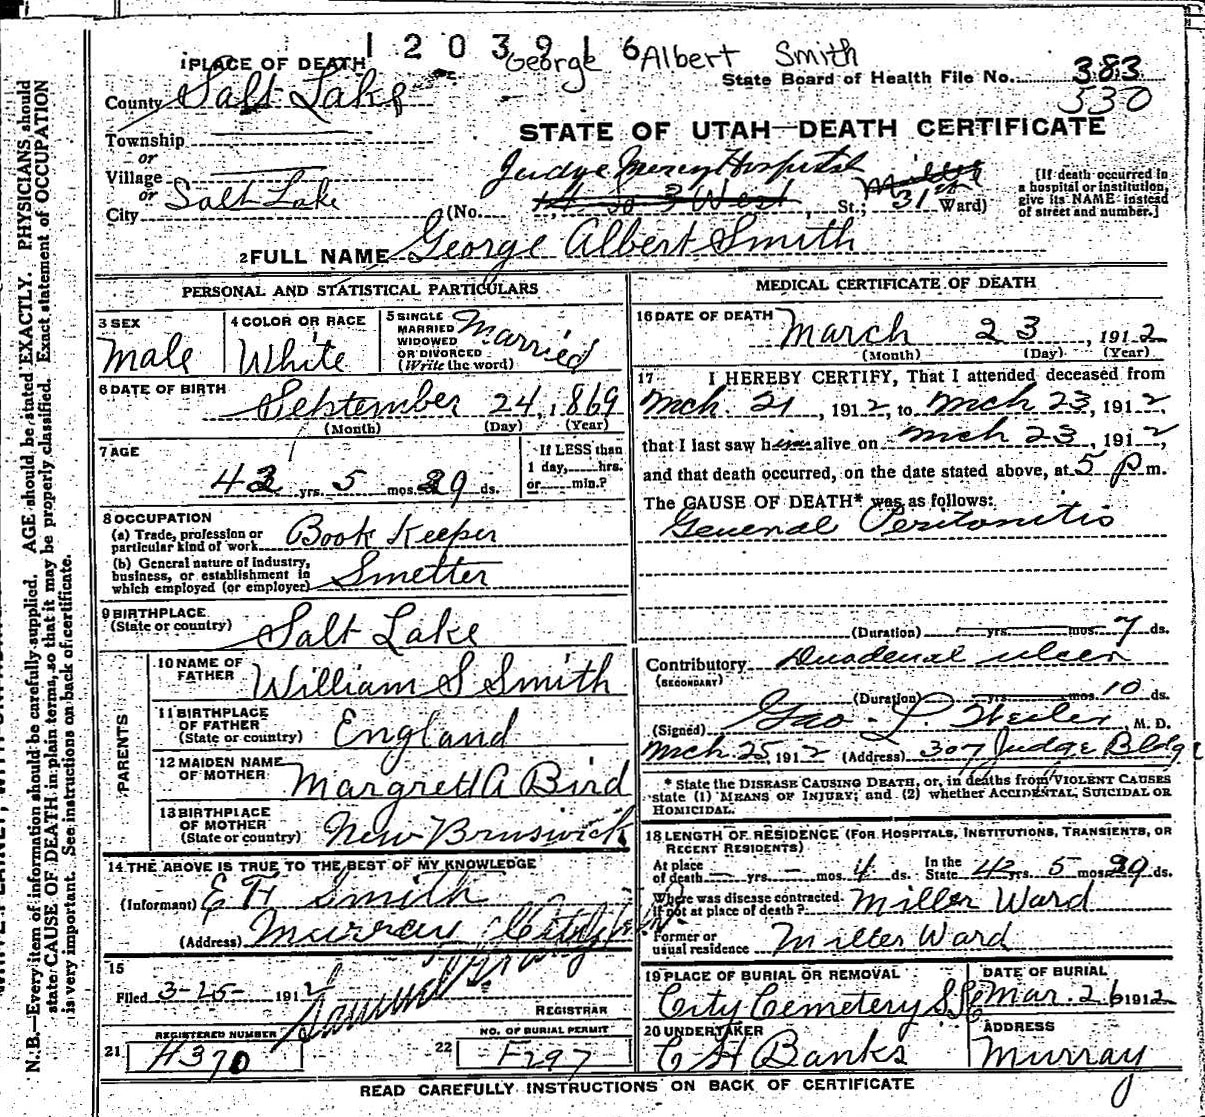 1 2 0 3 9 1 6
George Albert Smith
1 PLACE OF DEATH
State Board of Health File No. 383
330
County Salt Lake
STATE OF UTAH—DEATH CERTIFICATE
Township
or
Village
or
City Salt Lake
Judge Mercy Hospital
(No. 3 West, St.; 31st Ward)
[If death occurred in a hospital or institution, give its NAME instead of street and number.]
2 FULL NAME George Albert Smith
PERSONAL AND STATISTICAL PARTICULARS
3 SEX
Male
4 COLOR OR RACE
White
5 SINGLE
MARRIED
WIDOWED
OR DIVORCED
(Write the word)
Married
6 DATE OF BIRTH
September 24, 1869
(Month) (Day) (Year)
7 AGE
42 yrs. 5 mos. 29 ds.
If LESS than
1 day, hrs.
or min.?
8 OCCUPATION
(a) Trade, profession or
particular kind of work Book Keeper
(b) General nature of industry,
business, or establishment in
which employed (or employer) Smelter
9 BIRTHPLACE
(State or country) Salt Lake
PARENTS
10 NAME OF
FATHER William S Smith
11 BIRTHPLACE
OF FATHER
(State or country) England
12 MAIDEN NAME
OF MOTHER Margrett A Bird
13 BIRTHPLACE
OF MOTHER
(State or country) New Brunswick
14 THE ABOVE IS TRUE TO THE BEST OF MY KNOWLEDGE
(Informant) E H Smith
(Address) Murray
15
Filed 3-25- 1912
REGISTRAR
REGISTERED NUMBER
21 H370
NO. OF BURIAL PERMIT
22 F297
MEDICAL CERTIFICATE OF DEATH
16 DATE OF DEATH March 23, 1912
(Month) (Day) (Year)
17 I HEREBY CERTIFY, That I attended deceased from
Mch. 21, 1912, to Mch 23, 1912,
that I last saw him alive on Mch 23, 1912,
and that death occurred, on the date stated above, at 5 p m.
The CAUSE OF DEATH* was as follows:
General Peritonitis
(Duration) yrs. mos. 7 ds.
Contributory Duodenal ulcer
(SECONDARY)
(Duration) yrs. mos. 10 ds.
(Signed) Geo. , M. D.
Mch 25, 1912 (Address) 307 Judge Bldg
* State the DISEASE CAUSING DEATH, or, in deaths from VIOLENT CAUSES
state (1) MEANS OF INJURY; and (2) whether ACCIDENTAL, SUICIDAL OR
HOMICIDAL.
18 LENGTH OF RESIDENCE (FOR HOSPITALS, INSTITUTIONS, TRANSIENTS, OR
RECENT RESIDENTS)
At place
of death yrs. mos. 4 ds. In the
State 42 yrs. 5 mos. 29 ds.
Where was disease contracted,
if not at place of death? Miller Ward
Former or
usual residence Miller Ward
19 PLACE OF BURIAL OR REMOVAL
City Cemetery
DATE OF BURIAL
Mar. 26 1912
20 UNDERTAKER
C H Banks
ADDRESS
Murray
READ CAREFULLY INSTRUCTIONS ON BACK OF CERTIFICATE
N. B.—Every item of information should be carefully supplied. AGE should be stated EXACTLY. PHYSICIANS should
state CAUSE OF DEATH in plain terms, so that it may be properly classified. Exact statement of OCCUPATION
is very important. See instructions on back of certificate.